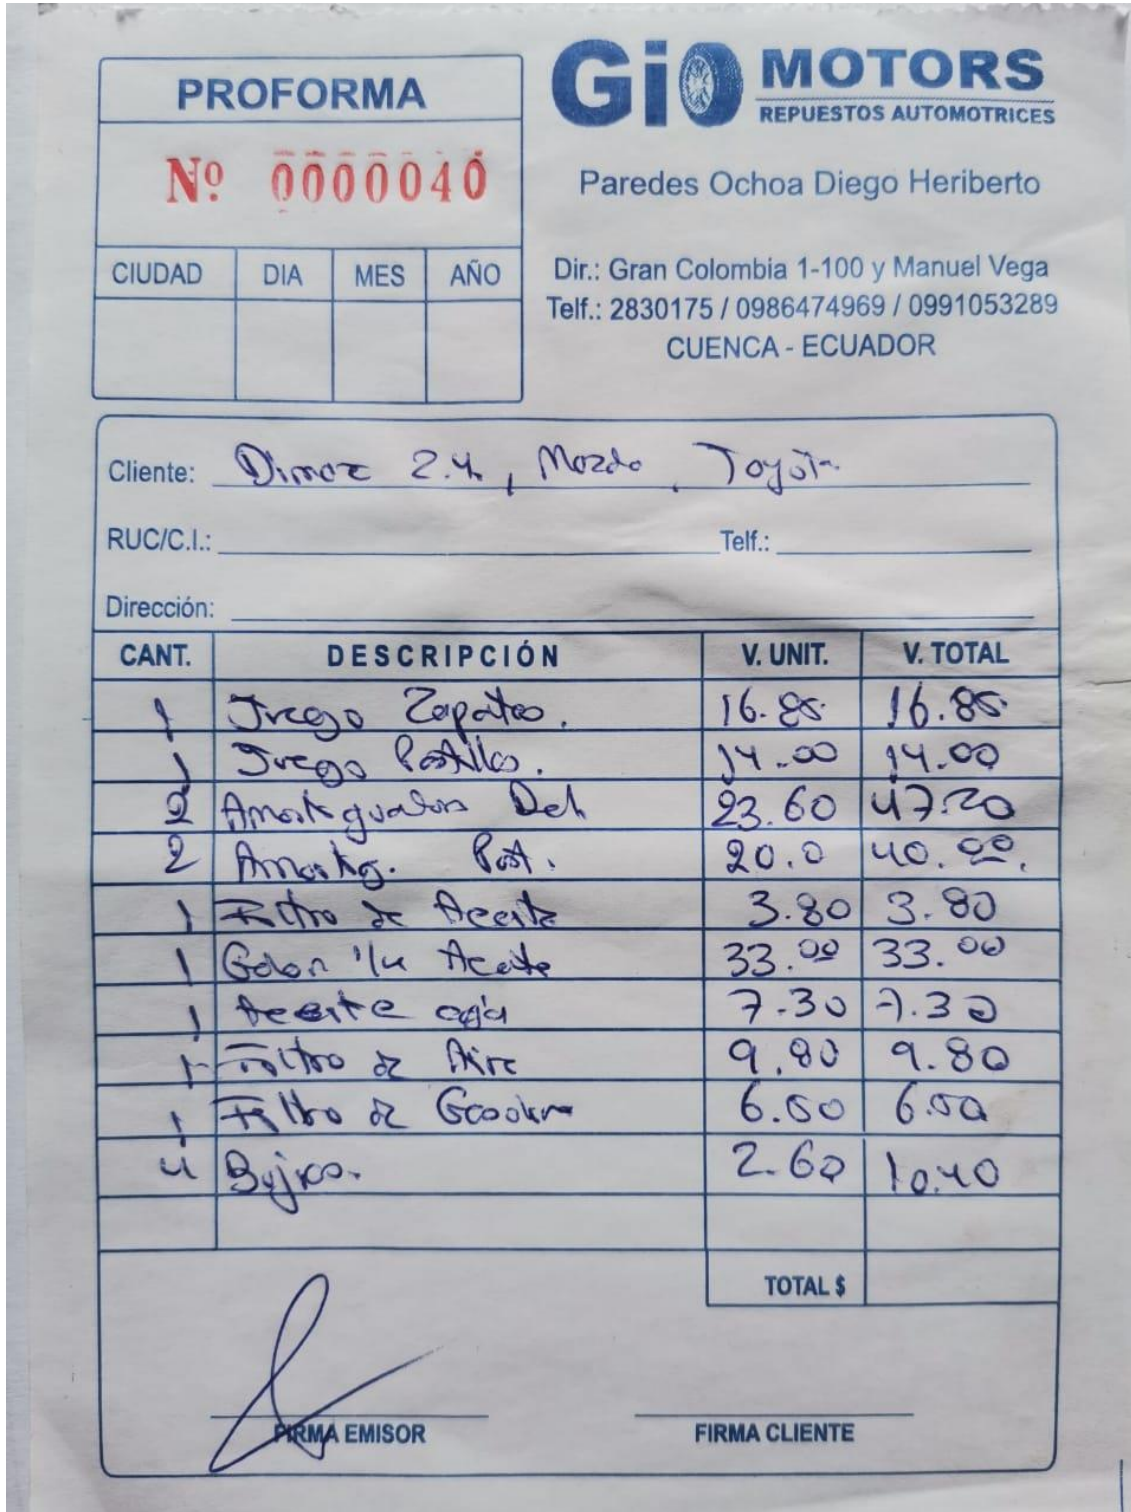 PROFORMA
Nº 0000040
CIUDAD DIA MES AÑO
GiO MOTORS
REPUESTOS AUTOMOTRICES
Paredes Ochoa Diego Heriberto
Dir.: Gran Colombia 1-100 y Manuel Vega
Telf.: 2830175 / 0986474969 / 0991053289
CUENCA - ECUADOR
Cliente: Dimax 2.4, Mazda, Toyota
RUC/C.I.: Telf.:
Dirección:
CANT. DESCRIPCIÓN V. UNIT. V. TOTAL
1 Juego Zapatas. 16.85 16.85
1 Juego Pastillas. 14.00 14.00
2 Amortiguadores Del 23.60 47.20
2 Amortig. Post. 20.0 40.00.
1 Filtro de Aceite 3.80 3.80
1 Galon 1/4 Aceite 33.00 33.00
1 Aceite caja 7.30 7.30
1 Filtro de Aire 9.80 9.80
1 Filtro de Gasolina
4 Bujias. 2.60 10.40
TOTAL $
FIRMA EMISOR FIRMA CLIENTE